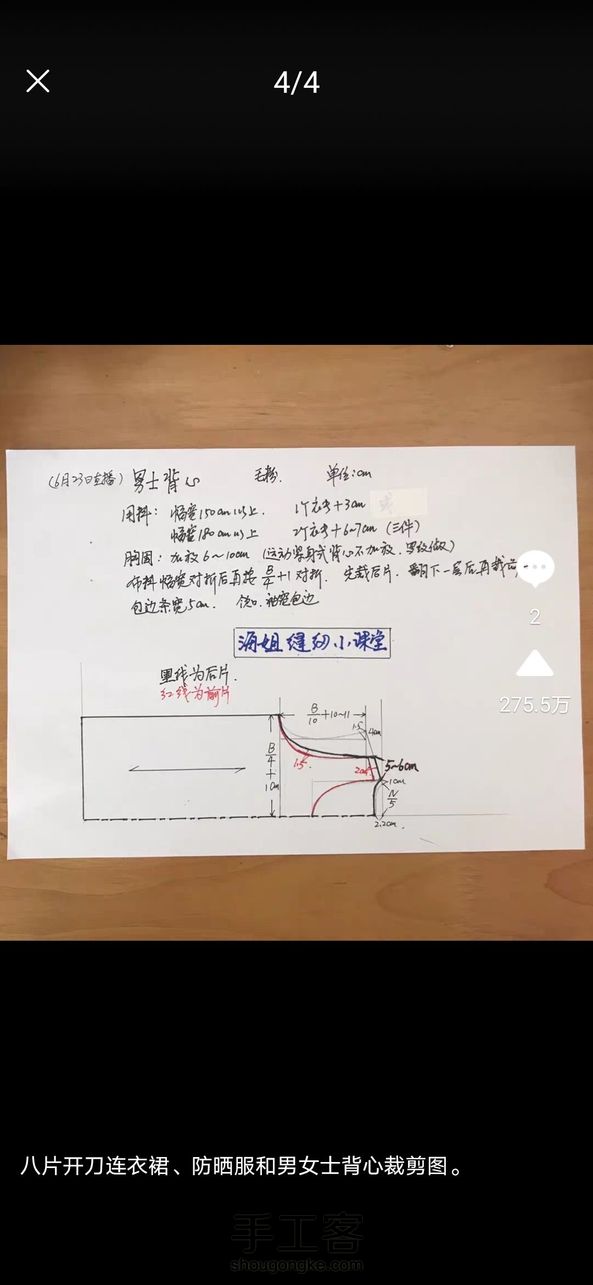 4/4
(6月23日直播) 男士背心 毛粉. 单位:cm
用料: 幅宽150cm以上. 1个衣长+3cm
幅宽180cm以上 2个衣长+6~7cm (三件)
胸围: 加放6~10cm (运动紧身式背心不加放.
布料幅宽对折后再按 B/4+1 对折. 先裁后片. 翻下一层后再裁前
包边条宽5cm. 领口.袖窿包边
2
海姐缝纫小课堂
275.5万
黑线为后片.
红线为前片
B/10+10~11
1.5
B/4+1cm
1.5
2cm
5~6cm
1cm
N/5
2.2cm.
八片开刀连衣裙、防晒服和男女士背心裁剪图。
手工客
shougongke.com